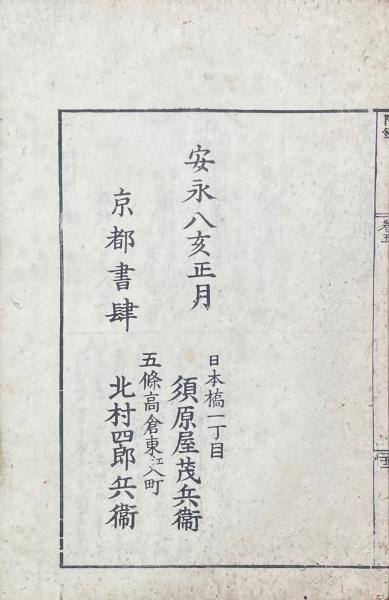 安永八亥正月
日本橋一丁目
須原屋茂兵衞
京都書肆
五條高倉東江入町
北村四郎兵衞
卷五